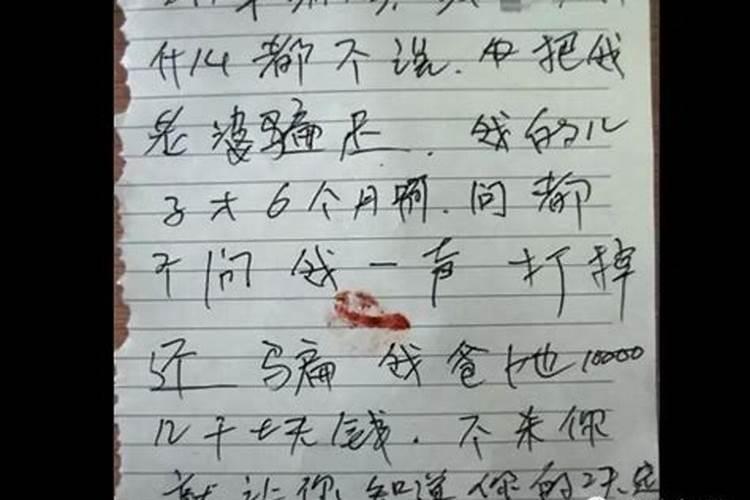 什么都不说.又把我
老婆骗走.我的儿
子才6个月啊.问都
不问我一声 打掉
还骗我爸他10000
几千七天钱.不来你
就让你知道你的